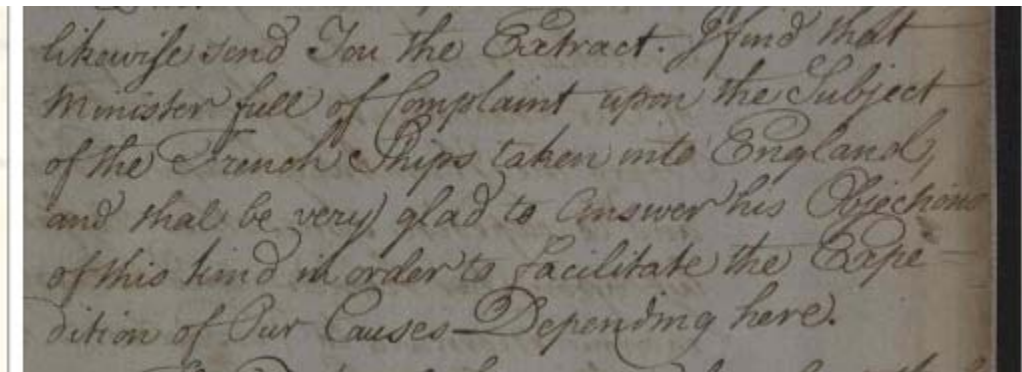 likewise send You the Extract. I find that
Minister full of Complaint upon the Subject
of the French Ships taken into England,
and shal be very glad to Answer his Objections
of this kind in order to facilitate the Expe-
dition of Our Causes Depending here.